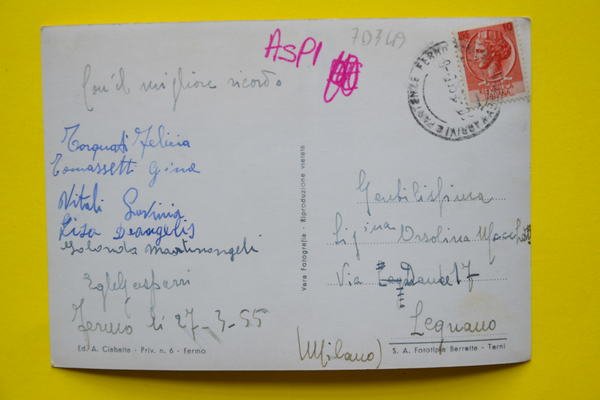 7D7LA
ASPI
10
Con il migliore ricordo
Torquati Felicia
Tomassetti Gina
Vitali Lavinia
Lisa Deangelis
Iolanda Martinangeli
Egle Gasparri
Fermo li 27-3-55
Ed. A. Ciabette - Priv. n. 6 - Fermo
Vera Fotografia - Riproduzione vietata
Gentilissima
Sig.ina Orsolina
Via Dante 17
Legnano
(Milano)
S. A. Fototipia Berretta - Terni